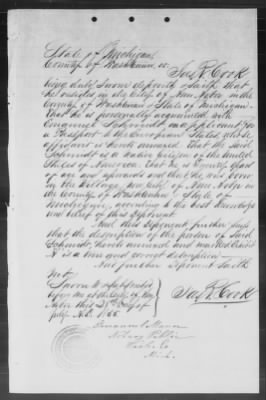 State of Michigan
County of Washtenaw ss.
Jas. R. Cook
being duly sworn deposeth & saith that
he resides in the City of Ann Arbor in the
County of Washtenaw & State of Michigan
That he is personally acquainted with
Emanuel Schmidt an applicant for
a Passport to the European States, whose
affidavit is hereto annexed That the said
Schmidt is a native citizen of the United
States of America That he is twenty years
of age and upwards and that he was born
in the village, now City of Ann Arbor in
the County of Washtenaw & State of
Michigan, according to the best knowledge
and belief of this Deponent
And this Deponent further says
that the description of the person of said
Schmidt, hereto annexed and marked Exhibit
A is a true and correct description
And further Deponent saith
not.
Sworn to & subscribed
before me at the City of Ann
Arbor this day of
July A.D. 1865
Jas. R. Cook
Emanuel Mann
Notary Public
Washt. Co.
Mich.